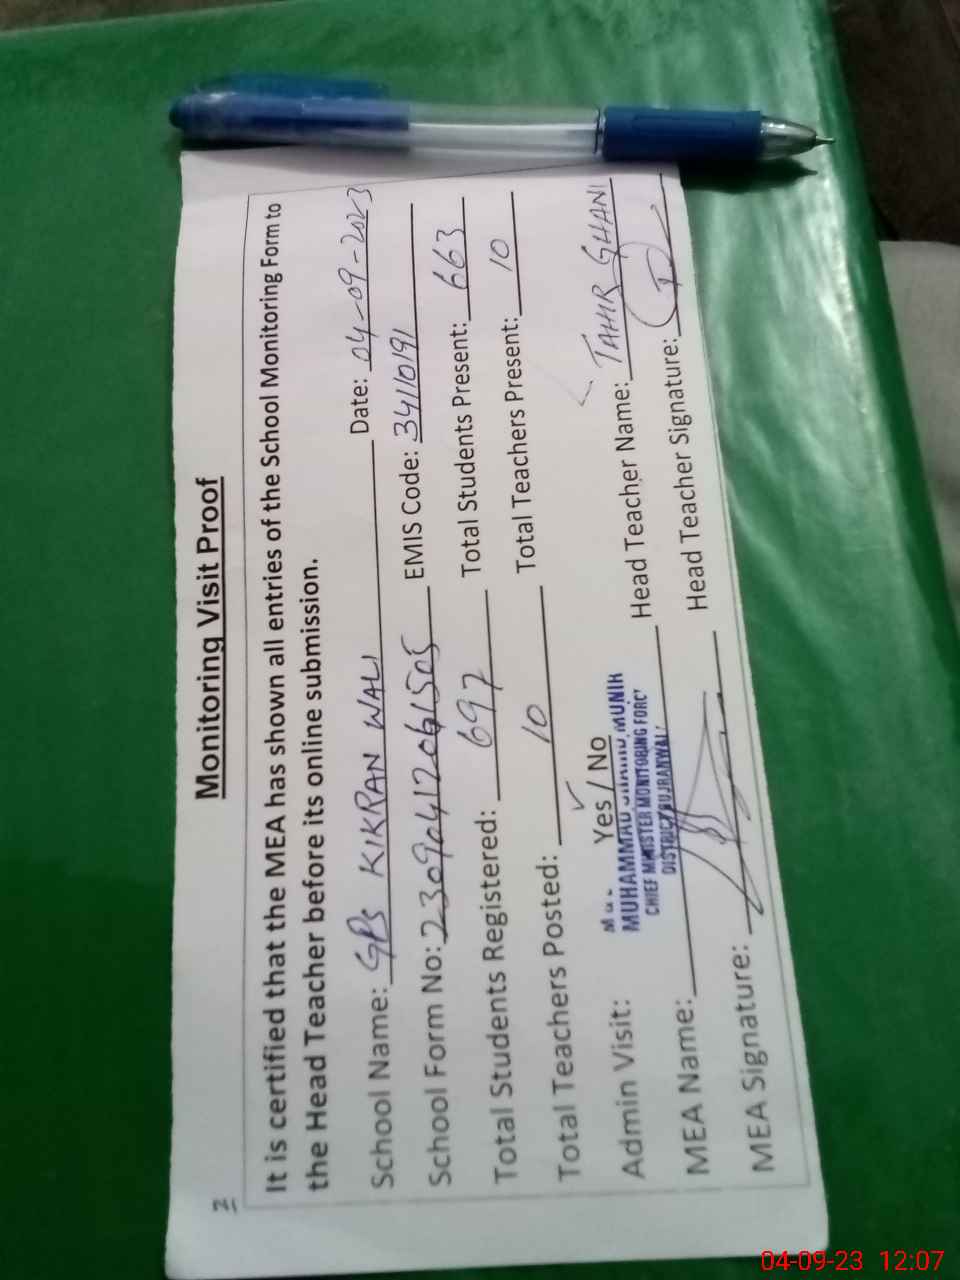 Monitoring Visit Proof
It is certified that the MEA has shown all entries of the School Monitoring Form to
the Head Teacher before its online submission.
School Name: GPS KIKRAN WALI Date: 04-09-2023
School Form No: 23090412061505 EMIS Code: 34110191
Total Students Registered: 697 Total Students Present: 663
Total Teachers Posted: 10 Total Teachers Present: 10
Admin Visit: Yes / No
MUHAMMAD MUNIR
CHIEF MINISTER MONITORING FORC
DISTRICT GUJRANWAL
MEA Name: Head Teacher Name: TAHIR GHANI
MEA Signature: Head Teacher Signature:
04-09-23 12:07